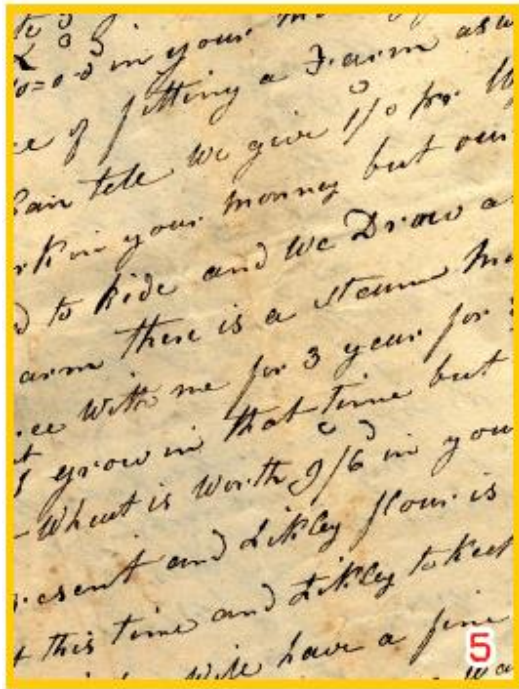 in your
ce of fitting a Farm as
Can tell We give 1/0 for
in your monney but our
to Ride and We Drow a
arm there is a steam
ee With me for 3 year for
grow in that time but
What is Worth 9/6 in you
resent and Likley flour is
this time and Likley to Keep
Will have a fine
5